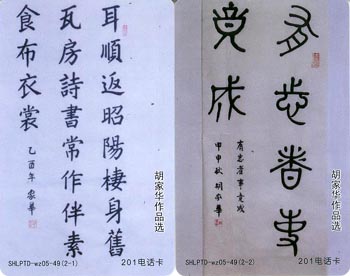 耳順返昭陽棲身舊
瓦房詩書常作伴素
食布衣裳
乙酉年 家華
胡家华作品选
SHLPTD-wz05-49(2-1)
201电话卡
有志者事
竟成
有志者事竟成
甲申秋 胡家華
胡家华作品选
SHLPTD-wz05-49(2-2)
201电话卡